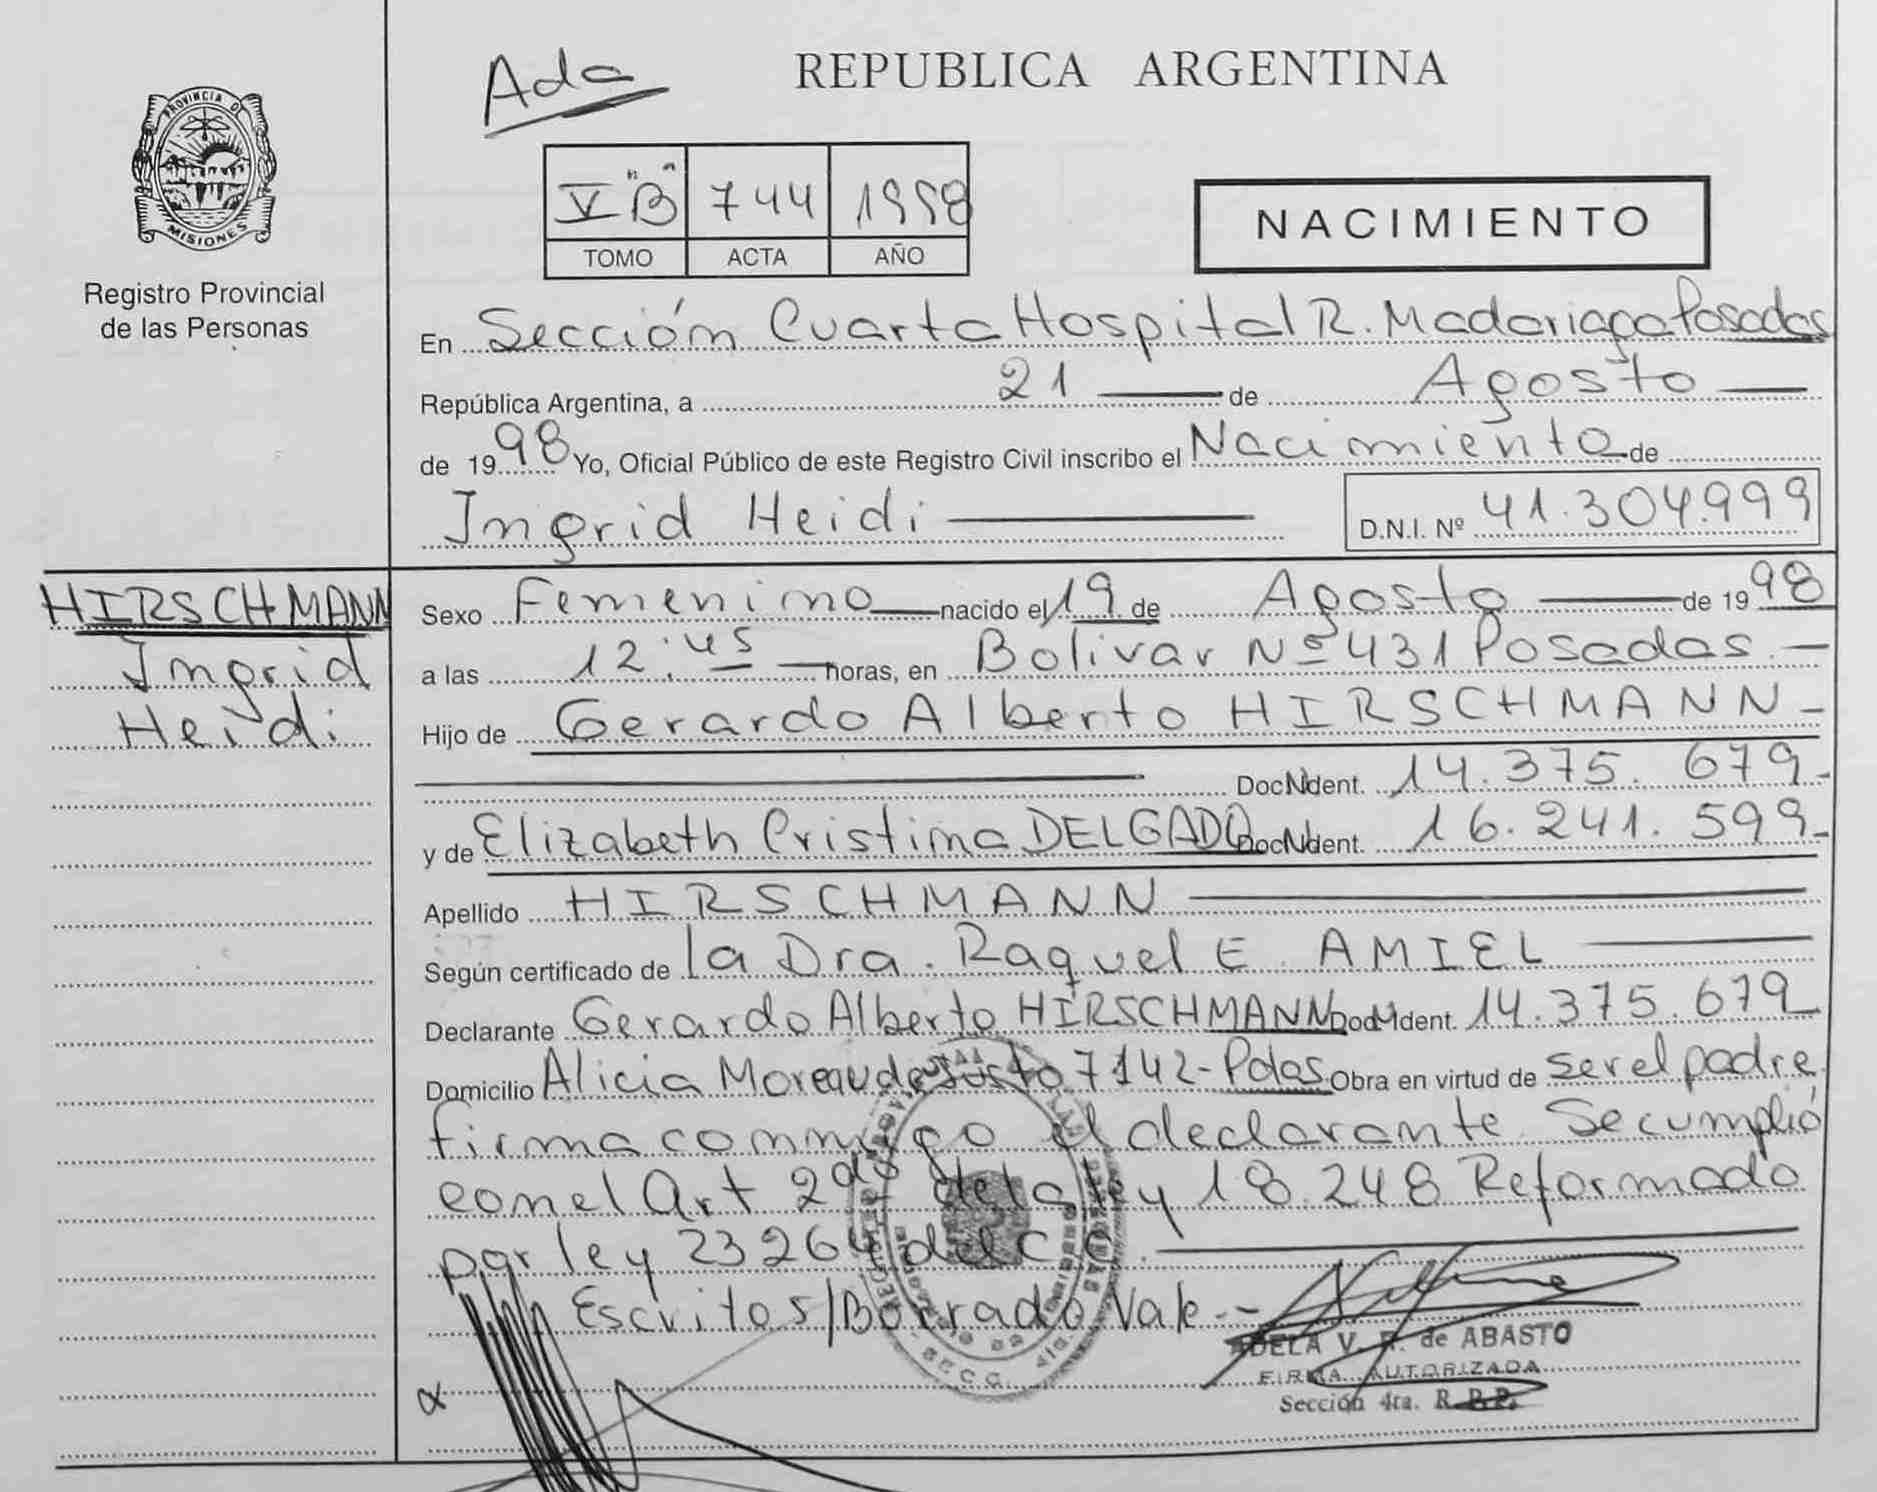 Ada
REPUBLICA ARGENTINA
PROVINCIA DE
MISIONES
Registro Provincial
de las Personas
V "B" 744 1998
TOMO ACTA AÑO
NACIMIENTO
En Sección Cuarta Hospital R. Madariaga Posadas
República Argentina, a 21 de Agosto
de 1998 Yo, Oficial Público de este Registro Civil inscribo el Nacimiento de
Ingrid Heidi
D.N.I. Nº 41.304.999
HIRSCHMANN
Ingrid
Heidi
Sexo Femenino nacido el 19 de Agosto de 1998
a las 12:45 horas, en Bolivar Nº 431 Posadas.
Hijo de Gerardo Alberto HIRSCHMANN
Doc. Ident. 14.375.679
y de Elizabeth Cristina DELGADO Doc. Ident. 16.241.599
Apellido HIRSCHMANN
Según certificado de la Dra. Raquel E. AMIEL
Declarante Gerardo Alberto HIRSCHMANN Doc. Ident. 14.375.679
Domicilio Alicia Moreau de Justo 7142-Pdas Obra en virtud de ser el padre
firma conmigo el declarante. Se cumplió
con el Art 2do de la ley 18.248 Reformado
por ley 23264 del C.C.
Escrito S/Borrado Vale.-
ADELA V. de ABASTO
FIRMA AUTORIZADA
Sección 4ta. R.P.P.